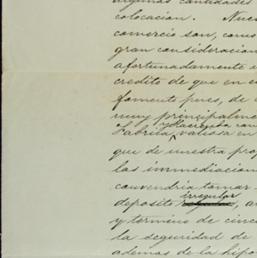 algunas cantidades
colocacion. Nues
comercio son, como
gran consideracion
afortunadamente e
credito de que en e
fomente pues, de
muy principalme
Fabrica valiosa en
que de nuestra pro
las inmediacion
convendria tomar
irregular
deposito a
y termino de cinco
la seguridad de
ademas de la hipo